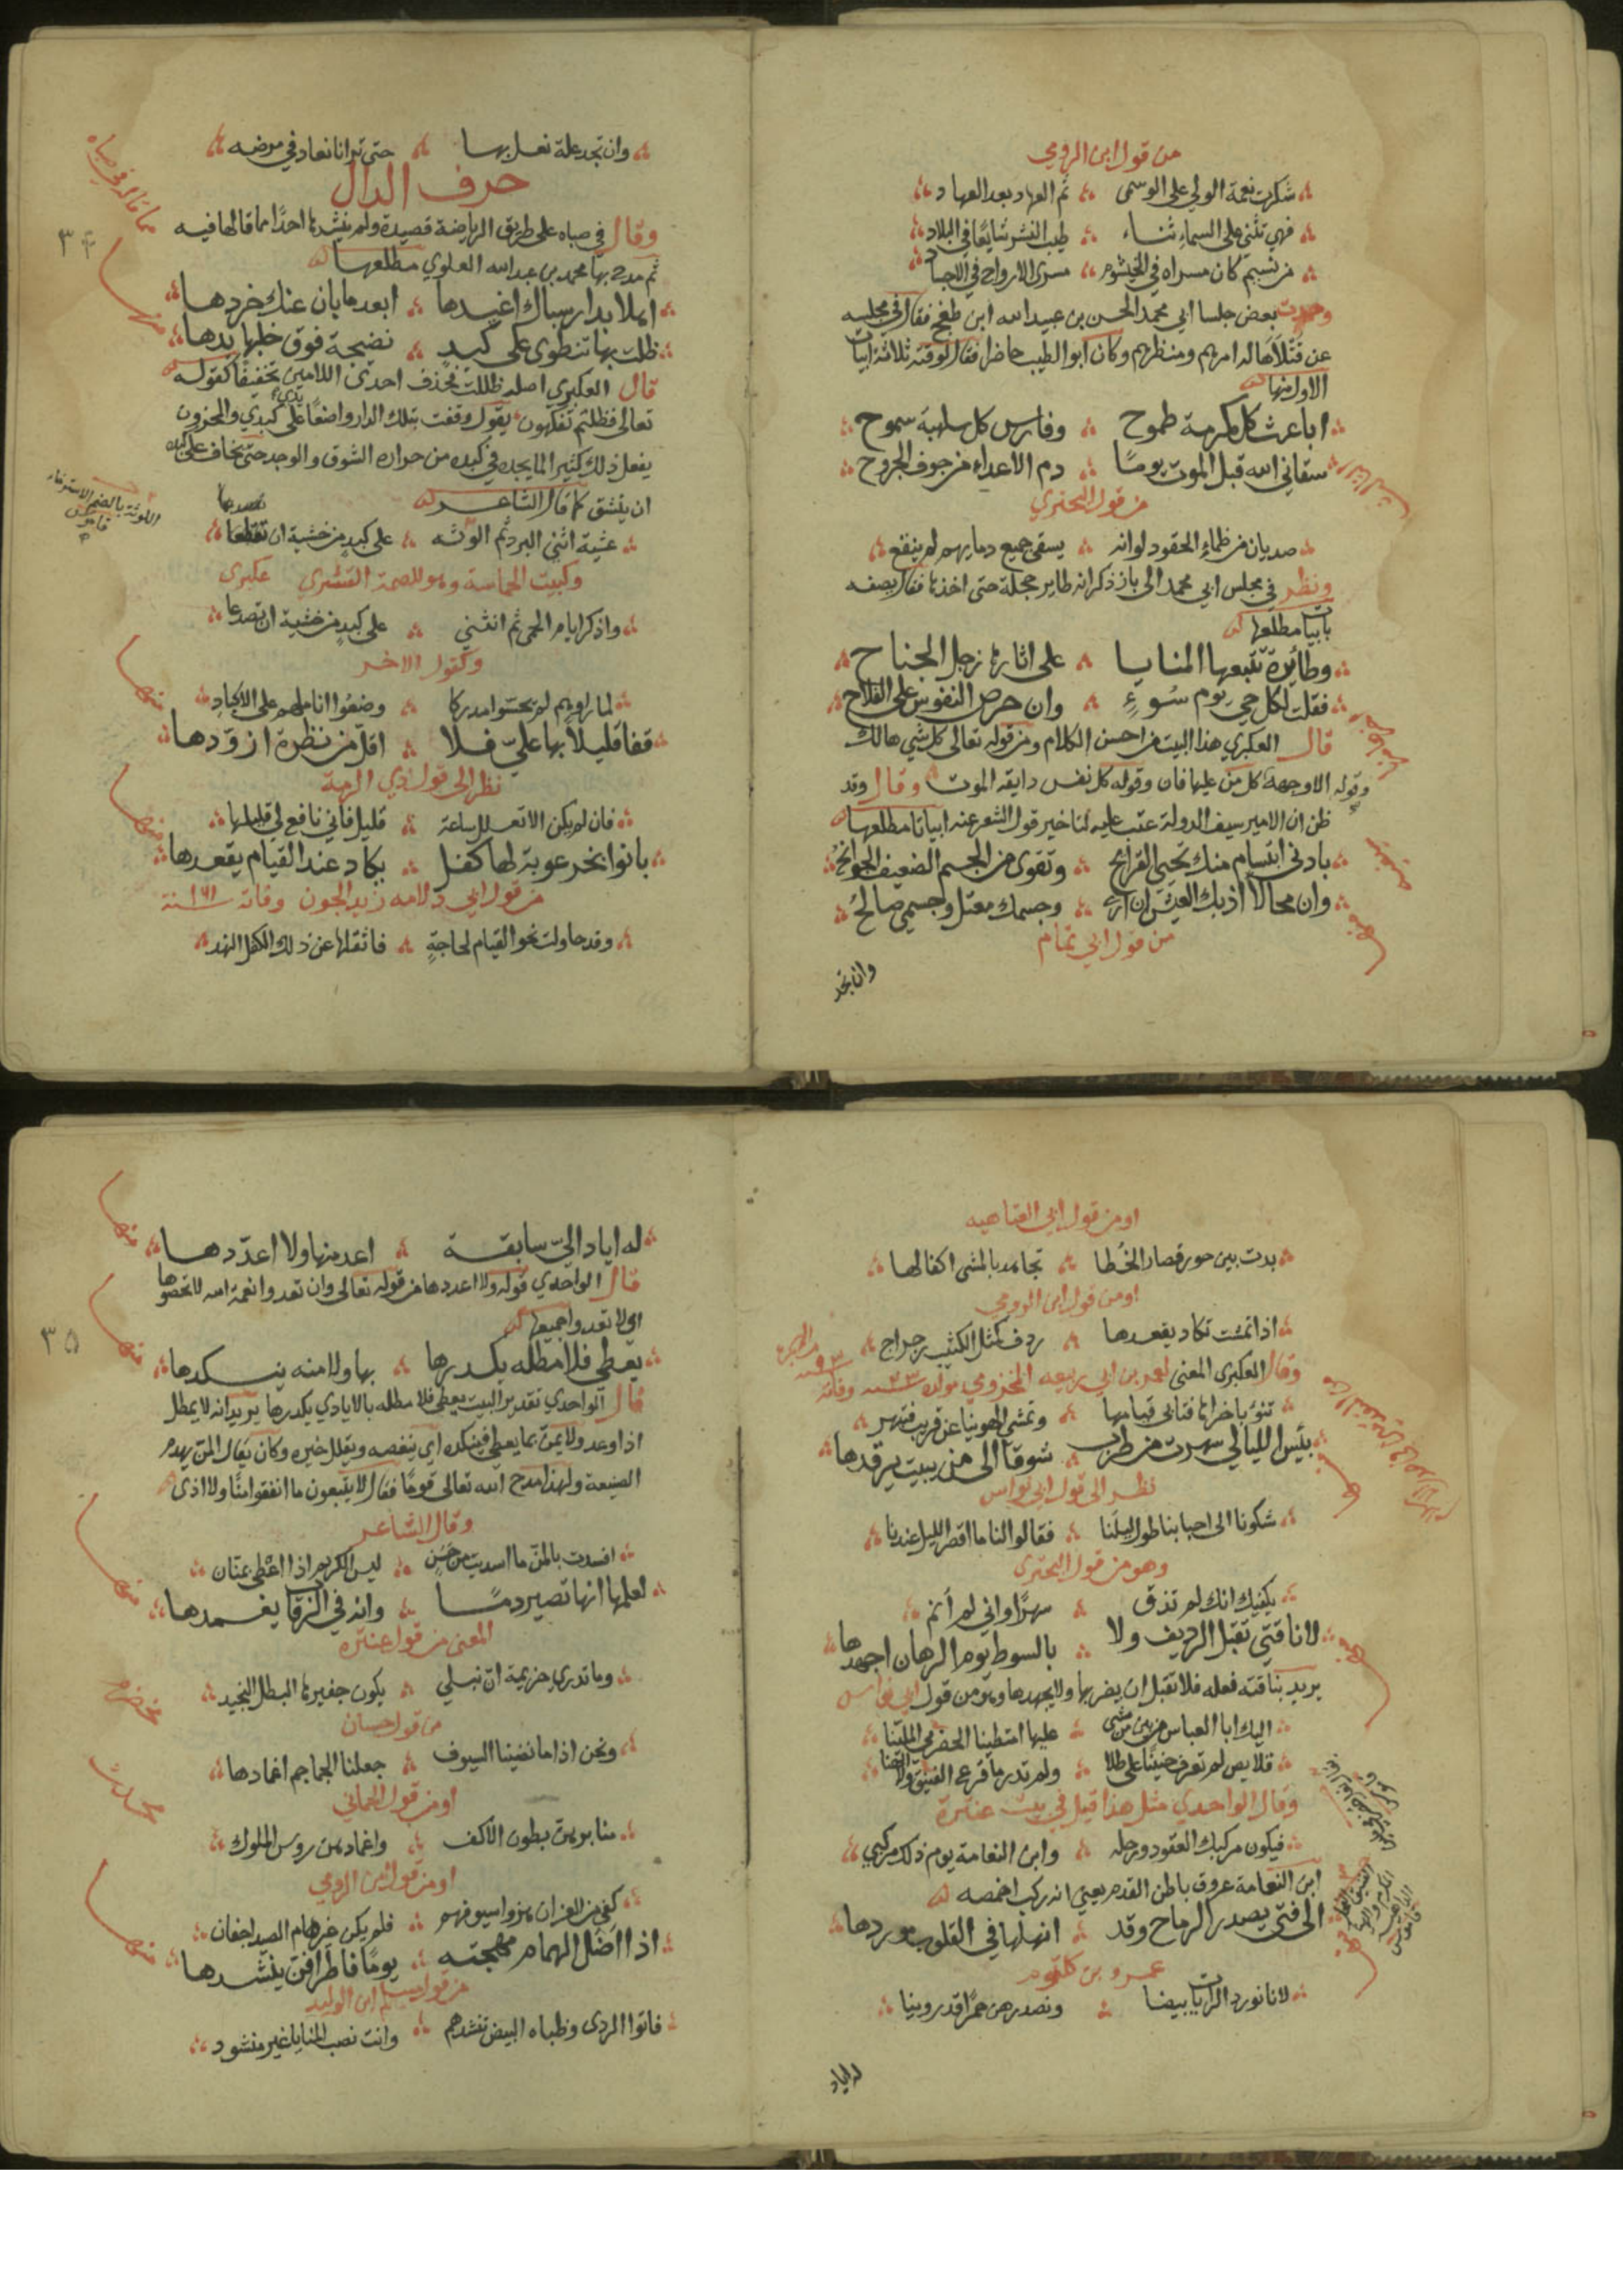 من قول ابن الرومي
شكرت نعمة الولي على الوسمى ثم العهاد بعد العهاد
فهي تثني على السماء ثناء طيب النشر شايعا في البلاد
من نسيم كان مسراه في الخيشوم مسرى الارواح في الاجساد
وحدث بعض جلسا ابي محمد الحسن بن عبيد الله ابن طغج فقال في مجلسه
عن قتلاها له امرهم ومنظرهم وكان ابو الطيب حاضرا فقال لوقته ثلاثة ابيات
الاول منها
اباعث كل مكرمة طموح وفارس كل سلهبة سموح
سقاني الله قبل الموت يوما دم الاعداء من جوف الجروح
من قول البحتري
صديان من ظماء الحقود لو انه يسقى جميع دمايهم لم ينقع
ونظر في مجلس ابي محمد الى باز ذكر انه طاير حجلة حتى اخذها فقال يصفه
بابيات مطلعها
وطائرة تتبعها المنايا على اثارها زجل الجناح
فقلت لكل حي يوم سوء وان حرص النفوس على الفلاح
قال العكبري هذا البيت من احسن الكلام ومن قوله تعالى كل شي هالك
وقوله الا وجهه كل من عليها فان وقوله كل نفس دايقه الموت وقال وقد
ظن ان الامير سيف الدولة عتب عليه لتاخير قول الشعر عنه ابياتا مطلعها
بادنى ابتسام منك تحيى القرائح وتقوى من الجسم الضعيف الجوانح
وان محالا اذ بك العيش ان ارى وجسمك معتل وجسمي صالح
من قول ابي تمام
وان تجد
وان تجد علة نعل بها حتى ترانا نعاد في مرضه
حرف الدال
وقال في صباه على طريق الرياضة قصيدة ولم ينشدها احدا مما قالها فيه
ثم مدح بها محمد بن عبد الله العلوي مطلعها
اهلا بدار سباك اغيدها ابعد ما بان عنك خردها
ظلت بها تنطوي على كبد نضيجة فوق خلبها يدها
قال العكبري اصله ظللت فحذف احدى اللامين تخفيفا كقوله
تعالى فظلتم تفكهون يقول وقفت بتلك الدار واضعا يدي على كبدي والمحزون
يفعل ذلك كثيرا لما يجده في كبده من حراره الشوق والوجد حتى يخاف على كبده
ان ينشق كما قال الشاعر
عشية اثني البرد ثم الوثه على كبد من خشية ان تقطعا
وكبيت الحماسة وهو للصمة القشيري عكبرى
واذكر ايام الحمى ثم انثني على كبد من خشية ان تصدعا
وكقول الاخر
لما راوهم لم يحسوا مدركا وضعوا اناملهم على الاكباد
قفا قليلا بها علي فلا اقل من نظرة ازودها
نظر الى قول ذي الرمة
فان لم يكن الا تعلل ساعة قليل فاني نافع لي قليلها
بانوا بخرعوبة لها كفل يكاد عند القيام يقعدها
من قول ابي دلامه زند الجون وفاته ١٦١ سنة
وقد حاولت نحو القيام لحاجة فاثقلها عن ذلك الكفل النهد
مما قاله في صباه
٣٤
منها
اللوثة بالضم الاسترخاء
قاموس
منها
منها
او من قول ابي العتاهيه
بدت بين حور قصار الخطا تجاهد بالمشى اكفالها
او من قول ابن الرومي
اذا تمشت تكاد يقعدها ردف كمثل الكثيب رجراج
وقال العكبرى المعنى لعمر بن ابي ربيعه المخزومي مولده ٢٣ سنه وفاته ٩٣
تنؤ باخراها فتابى قيامها وتمشي الهوينا عن قريب فتبهر
بئس الليالي سهرت من طرب شوقا الى من يبيت يرقدها
نظر الى قول ابي نواس
شكونا الى احبابنا طول ليلنا فقالوا لنا ما اقصر الليل عندنا
وهو من قول البحترى
يكفيك انك لم تذق سهرا واني لم انم
لا ناقتي تقبل الرديف ولا بالسوط يوم الرهان اجهدها
يريد بناقته فعله فلا تقبل ان يضربها ولا يجهدها وهو من قول ابي نواس
اليك ابا العباس من بين من مشى عليها امتطينا الحضرمي الملسنا
قلايص لم تعرف حنينا على طلا ولم تدر ما قرع الفنيق ولا الهنا
وقال الواحدي مثل هذا قيل في بيت عنترة
فيكون مركبك القعود ورحله وابن النعامة يوم ذلك مركبي
ابن النعامة عروق باطن القدم يعني انه ركب اخمصه
الى فتى يصدر الرماح وقد انهلها في القلوب موردها
عمرو بن كلثوم
لانا نورد الرايات بيضا ونصدرهن حمرا قد روينا
له اياد
له اياد الي سابقة اعد منها ولا اعددها
قال الواحدي قوله ولا اعددها من قوله تعالى وان تعدوا نعمة الله لا تحصوها
اي لا تعدوا جميعها
يعطي فلا مطله يكدرها بها ولا منه ينكدها
قال الواحدي تقدير البيت يعطي فلا مطله بالايادي يكدرها يريد انه لا يمطل
اذا وعد ولا يمن بما يعطي فينكده اي ينغصه ويقلل خيره وكان يقال المن يهدم
الصنيعة ولهذا مدح الله تعالى قوما فقال لا يتبعون ما انفقوا منا ولا اذى
وقال الشاعر
افسدت بالمن ما اسديت من حسن ليس الكريم اذا اعطى بمنان
لعلمها انها تصير دما وانه في الرقاب يغمدها
المعنى من قول عنتره
وما تدري جزيمة ان نبلي يكون جفيرها البطل النجيد
من قول حسان
ونحن اذا ما نضينا السيوف جعلنا الجماجم اغمادها
او من قول الحماني
منابرهن بطون الاكف واغمادهن روس الملوك
او من قول ابن الرومي
كفى من العز ان هزوا سيوفهم فلم يكن غير هام الصيد اجفان
اذا اضل الهمام مهجته يوما فاطرافهن ينشدها
من قول مسلم ابن الوليد
فاتوا الردى وظباه البيض تنشدهم وانت نصب المنايا غير منشود
٣٥
منها
منها
منها
منها